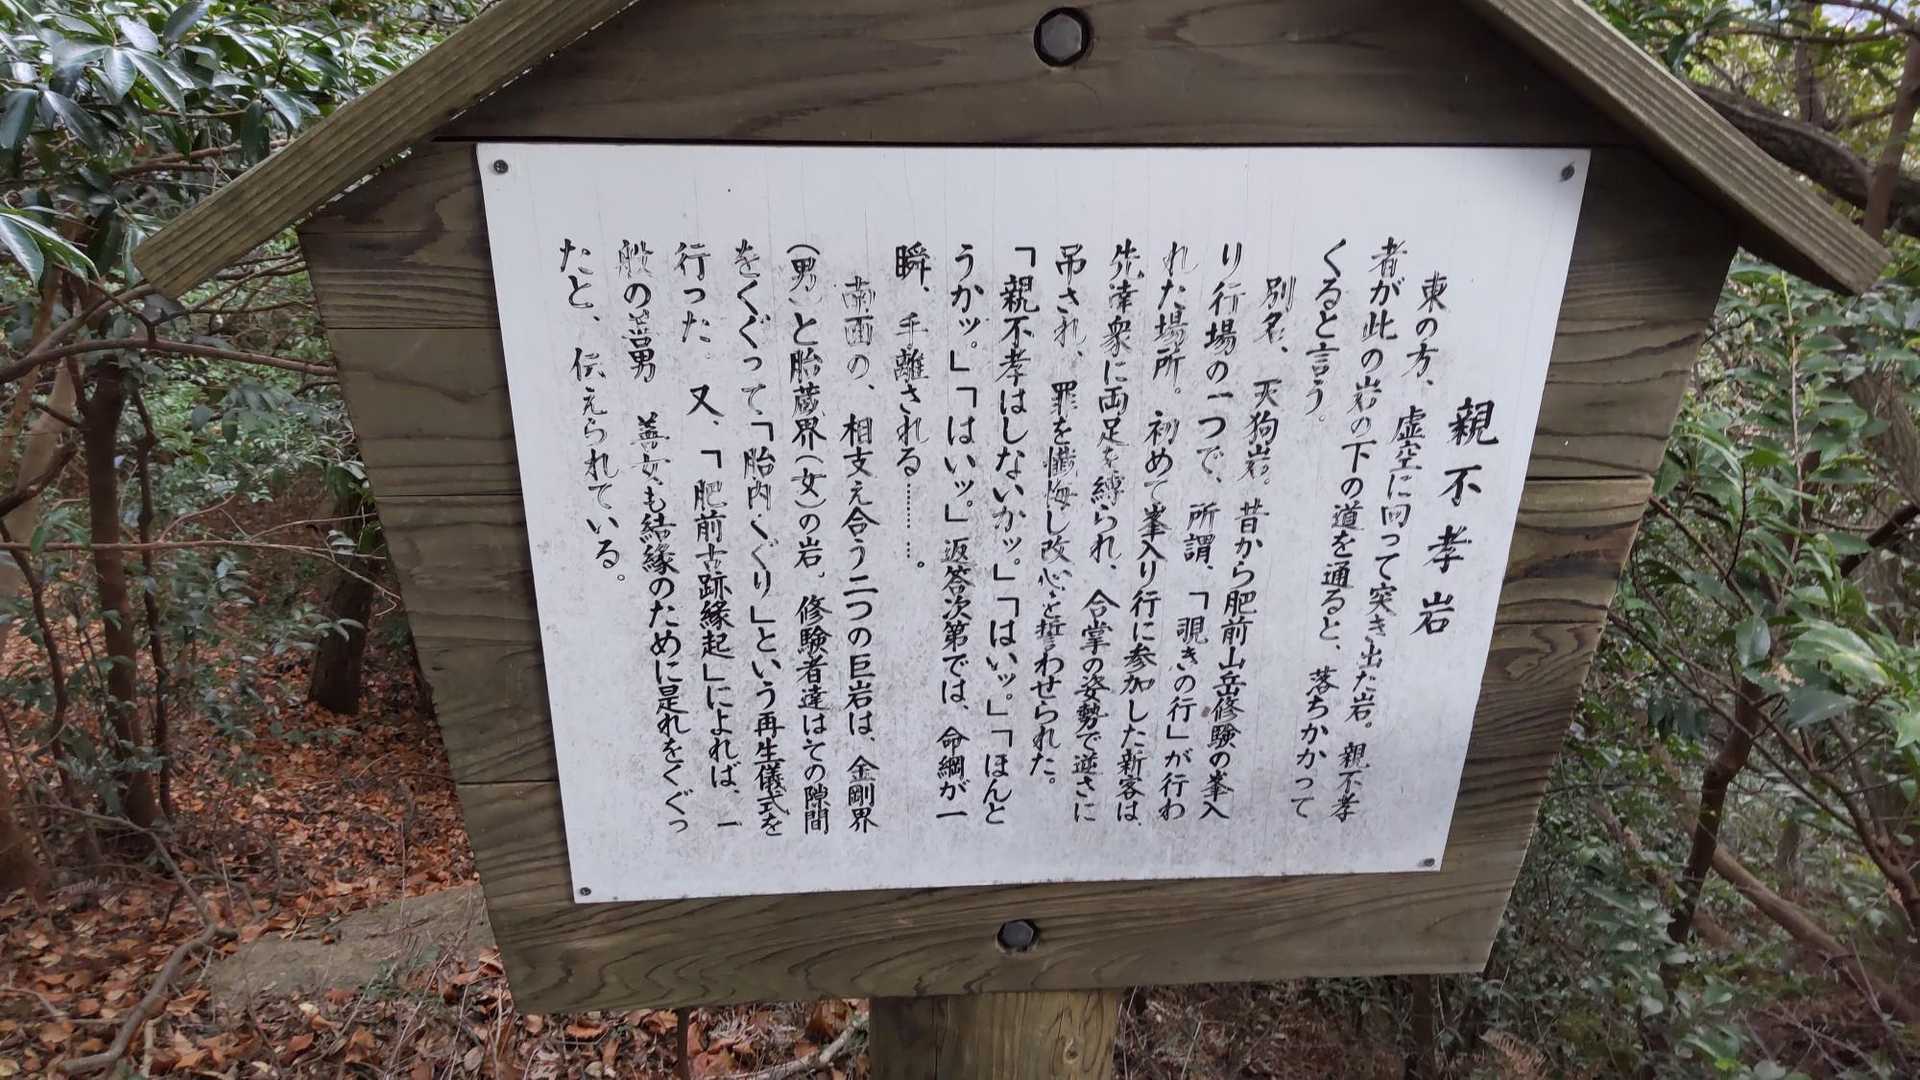 親不孝岩
東の方、虚空に向って突き出た岩。親不孝
者が此の岩の下の道を通ると、落ちかかって
くると言う。
別名、天狗岩。昔から肥前山岳修験の峯入
り行場の一つで、所謂、「覗きの行」が行わ
れた場所。初めて峯入り行に参加した新客は、
先達衆に両足を縛られ、合掌の姿勢で逆さに
吊され、罪を懺悔し改心を誓わせられた。
「親不孝はしないかッ。」「はいッ。」「ほんと
うかッ。」「はいッ。」返答次第では、命綱が一
瞬、手離される………。
南面の、相支え合う二つの巨岩は、金剛界
(男)と胎蔵界(女)の岩。修験者達はその隙間
をくぐって、「胎内くぐり」という再生儀式を
行った。又、「肥前古跡縁起」によれば、一
般の善男 善女も結縁のために是れをくぐっ
たと、伝えられている。